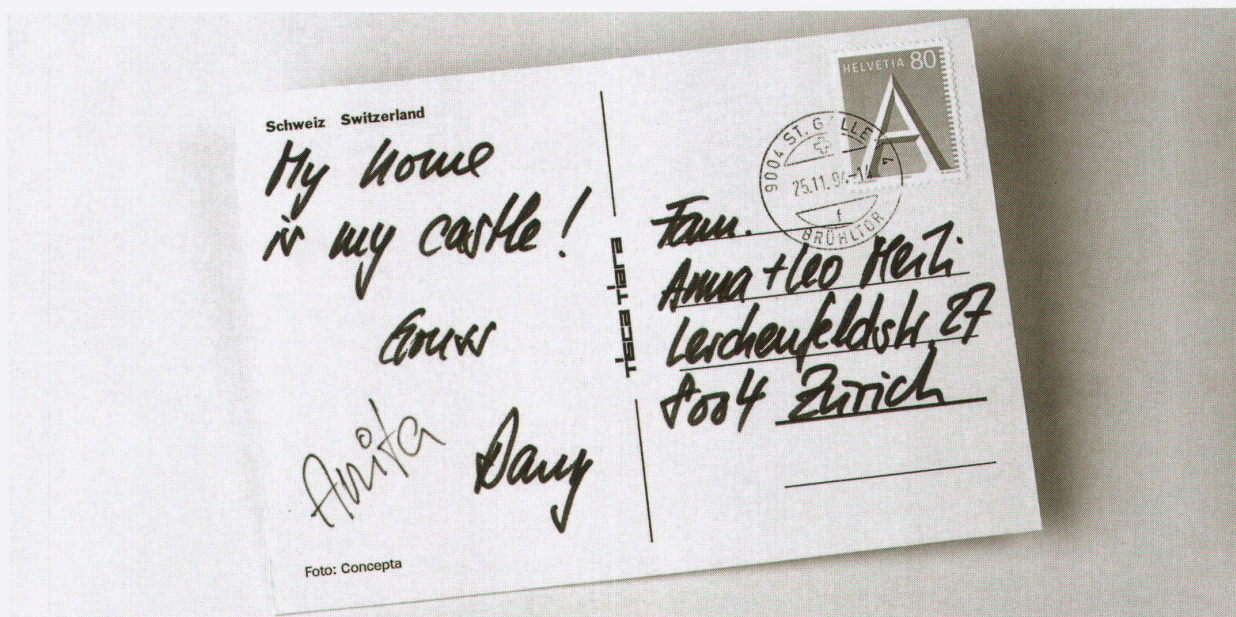 Schweiz Switzerland
My home
is my castle!
Gruss
Anita
Dany
Foto: Concepta
tisca tiara
HELVETIA 80
A
9004 ST. GALLEN 7
25.11.94-14
f
BRÜHLTOR
Fam.
Anna + Leo Meili
Lerchenfeldstr. 27
8004 Zürich